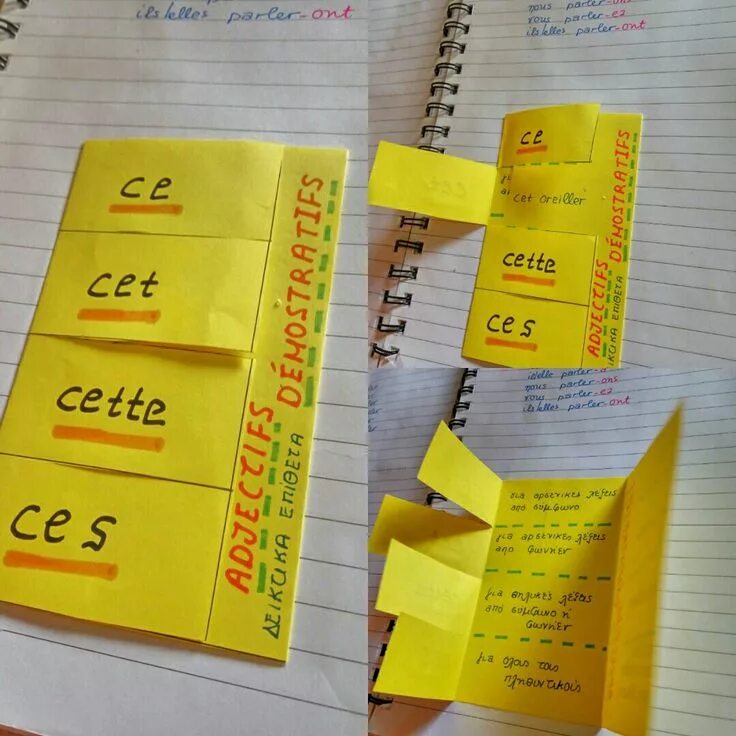 ils/elles parler-ont
ce
cet
cette
ces
ADJECTIFS DÉMOSTRATIFS
ΔΕΙΚΤΙΚΑ ΕΠΙΘΕΤΑ
nous parler-ons
vous parler-ez
ils/elles parler-ont
ce
cet oreiller
cette
ces
ADJECTIFS DÉMOSTRATIFS
ΔΕΙΚΤΙΚΑ ΕΠΙΘΕΤΑ
nous parler-ons
vous parler-ez
ils/elles parler-ont
για αρσενικές λέξεις
από σύμφωνο
για αρσενικές λέξεις
από φωνήεν
για θηλυκές λέξεις
από σύμφωνο ή
φωνήεν
για όλους τους
πληθυντικούς